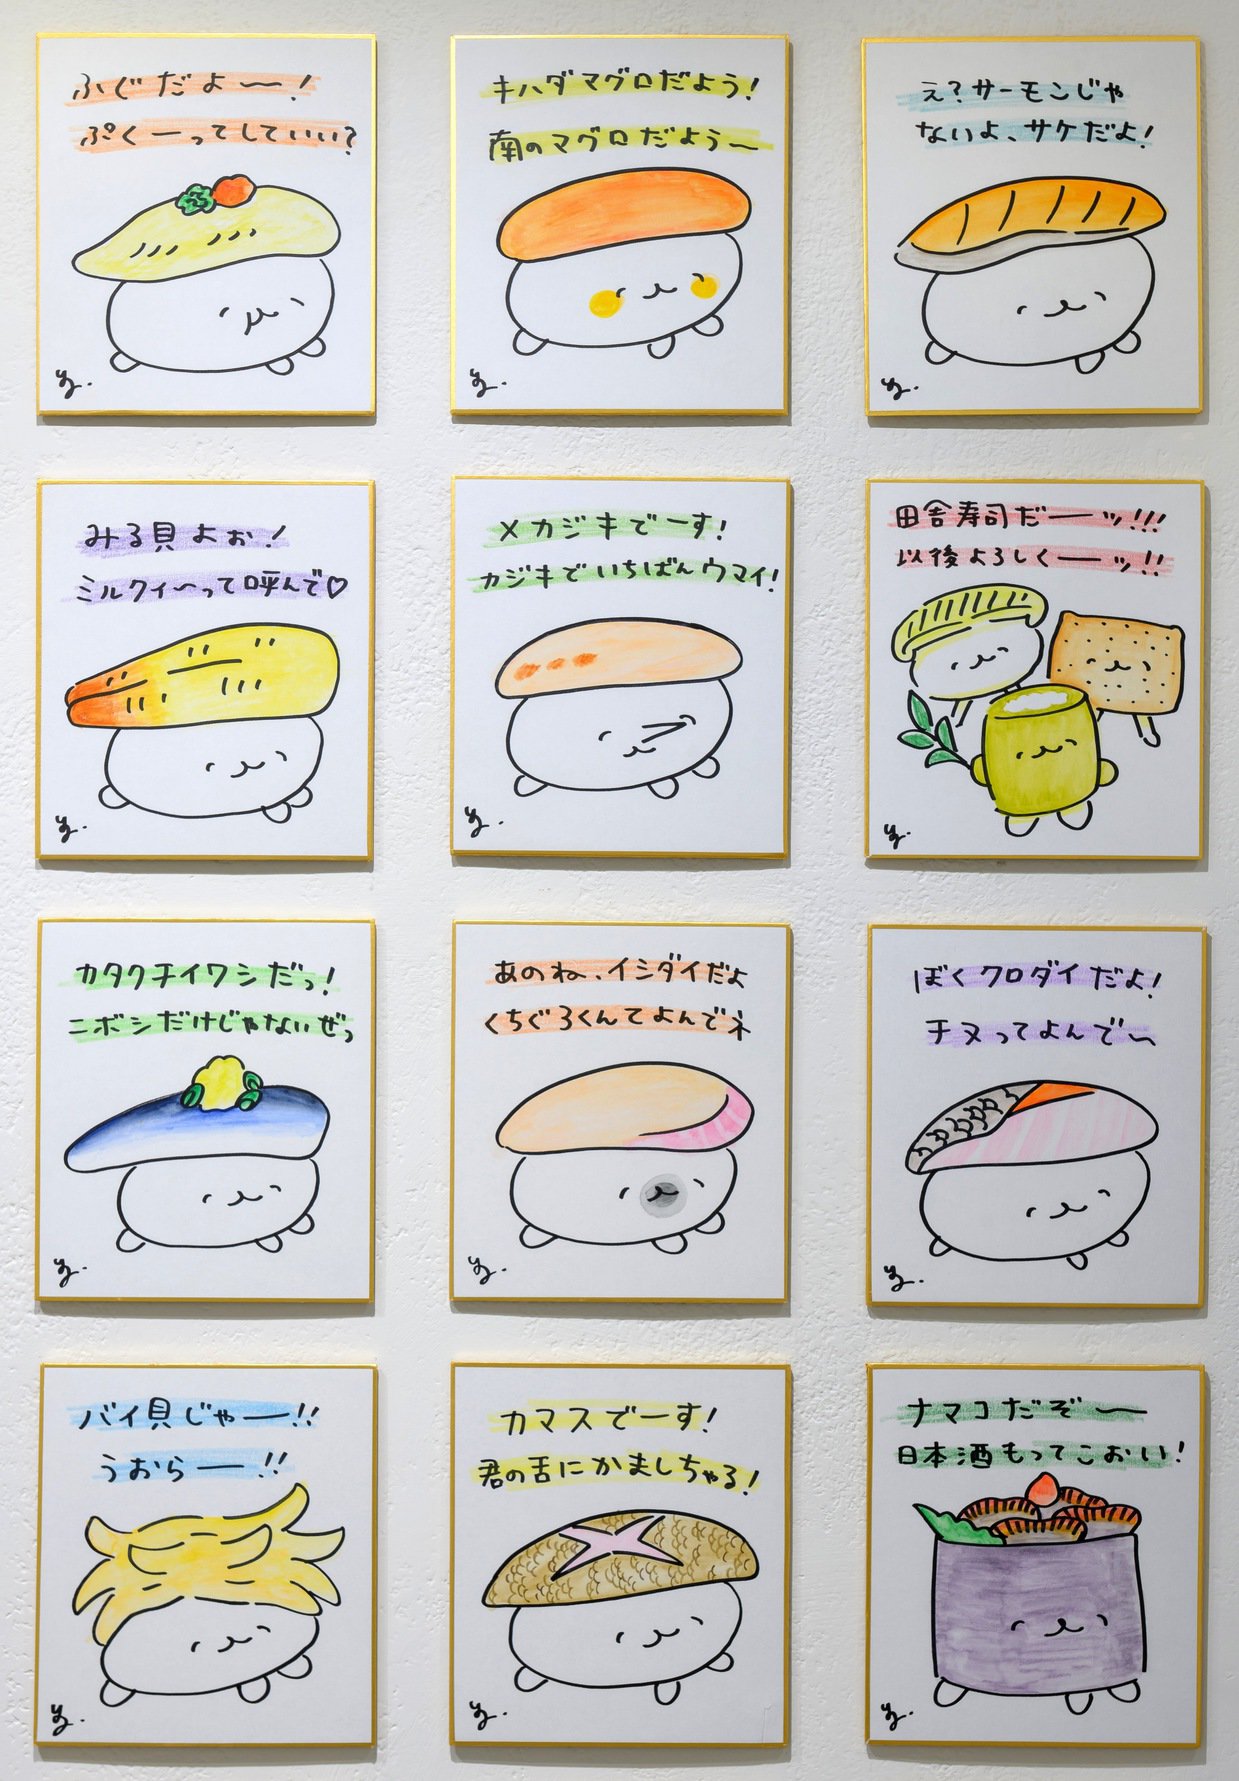 ふぐだよ〜!
ぷくーってしていい?
キハダマグロだよう!
南のマグロだよう〜
え?サーモンじゃ
ないよ、サケだよ!
みる貝よぉ!
ミルクィ〜って呼んで♡
メカジキでーす!
カジキでいちばんウマイ!
田舎寿司だーッ!!!
以後よろしくーッ!!
カタクチイワシだっ!
ニボシだけじゃないぜっ
あのね、イシダイだよ
くちぐろくんてよんでネ
ぼくクロダイだよ!
チヌってよんで〜
バイ貝じゃー!!
うおらー!!
カマスでーす!
君の舌にかましちゃる!
ナマコだぞ〜
日本酒もってこおい!